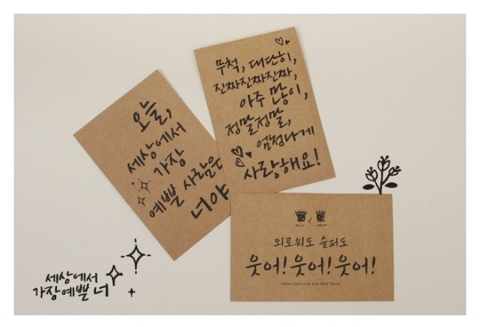 오늘,
세상에서
가장
예쁜 사람은
너야
무척, 대단히,
진짜진짜진짜,
아주 많이,
정말정말,
엄청나게
사랑해요!
외로워도 슬퍼도
웃어! 웃어! 웃어!
세상에서
가장예쁜 너